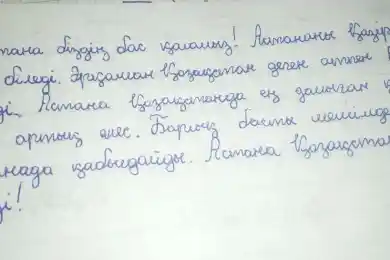 тана біздің бас қаламыз! Астананы Қазір
біледі. Әрқашан Қазақстан деген атпен
ді. Астана Қазақстанда ең дамыған қ
артық емес. Барлық басты мәлімде
нада қабылдайды. Астана Қазақстан
ді!